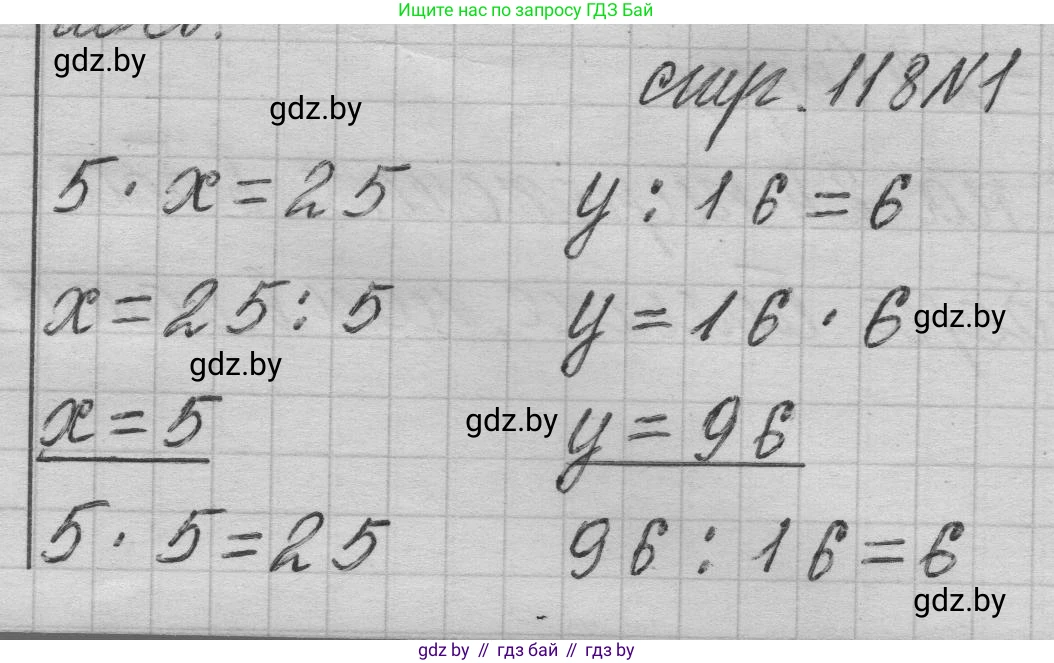 Ищите нас по запросу ГДЗ Бай
gdz.by
стр. 118 №1
gdz.by
5 · x = 25
y : 16 = 6
x = 25 : 5
y = 16 · 6
gdz.by
gdz.by
x = 5
gdz.by
y = 96
5 · 5 = 25
96 : 16 = 6
gdz.by
gdz by // гдз бай // gdz by